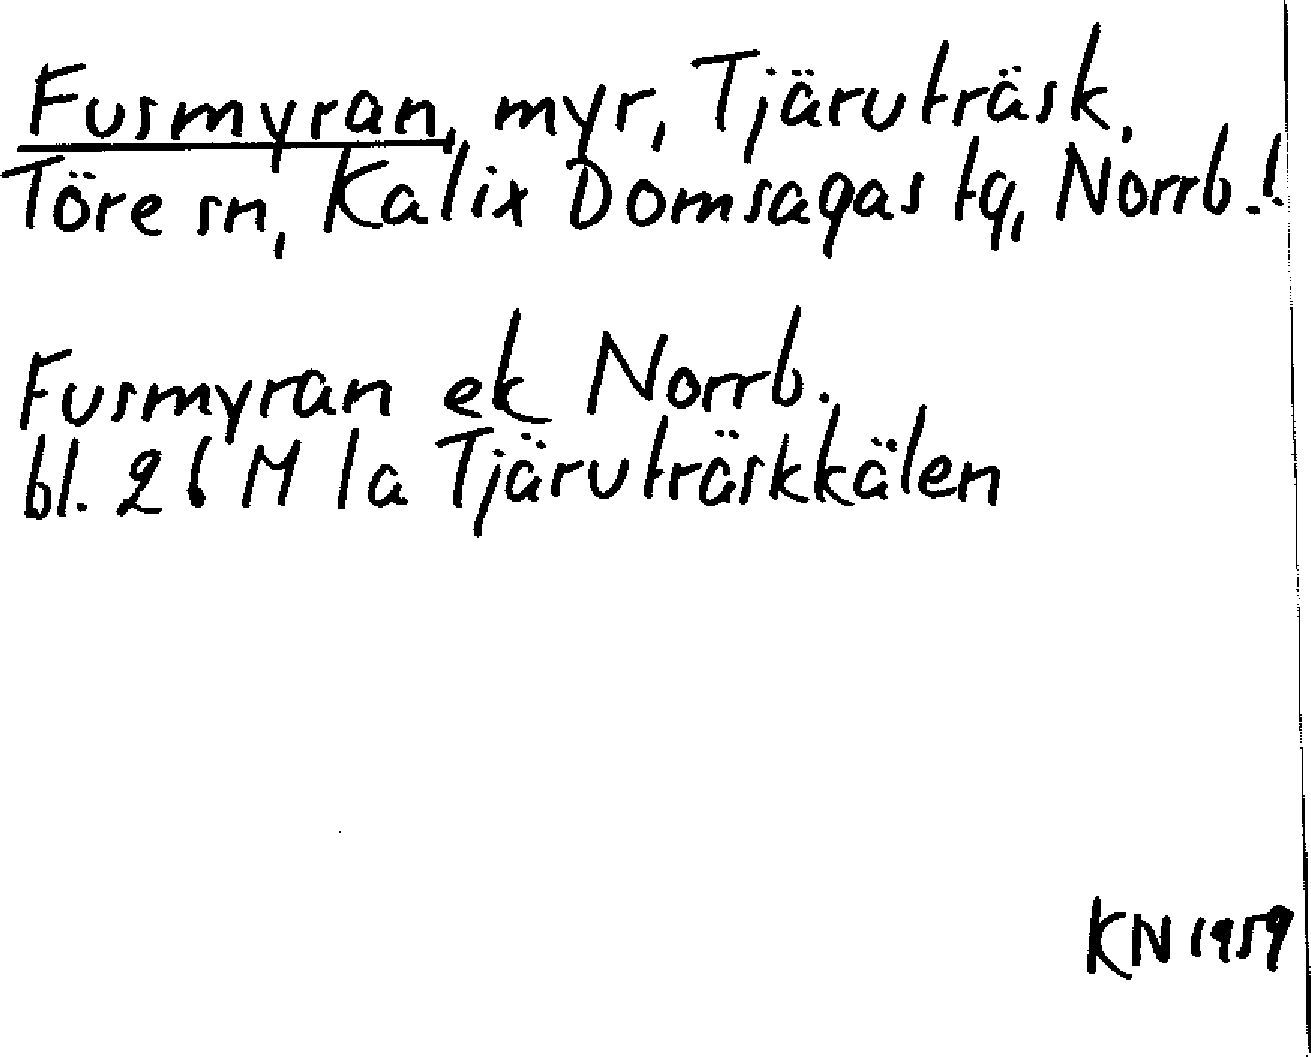 Fusmyran, myr, Tjäruträsk,
Töre sn, Kalix Domsagas tg, Norrb.l.
Fusmyran ek Norrb.
bl. 26 M la Tjäruträskkälen
KN 1959